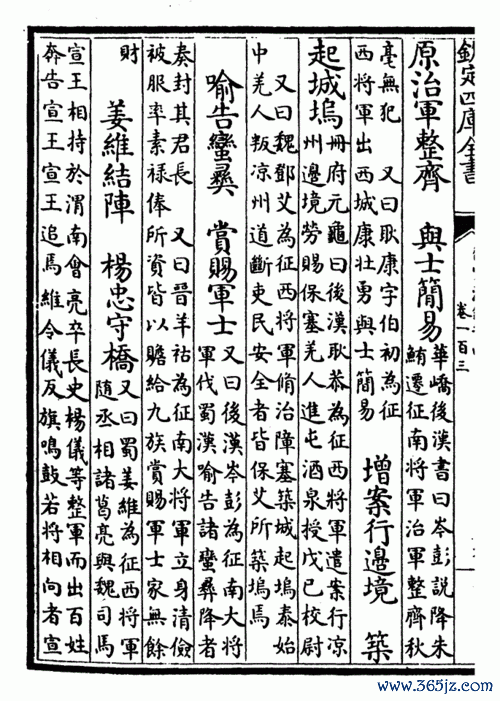 欽定四庫全書
卷一百三
原治軍整齊 與士簡易
華嶠後漢書曰岑彭說降朱
鮪遷征南將軍治軍整齊秋
毫無犯 又曰耿康字伯初為征
西將軍出西城康壯勇與士簡易
增案行邊境 築
起城塢
冊府元龜曰後漢耿恭為征西將軍遣案行涼
州邊境勞賜保塞羌人進屯酒泉授戊己校尉
又曰魏鄧艾為征西將軍脩治障塞築城起塢泰始
中羌人叛涼州道斷吏民安全者皆保艾所築塢焉
喻告蠻彞 賞賜軍士
又曰後漢岑彭為征南大將
軍代蜀漢喻告諸蠻彞降者
奏封其君長 又曰晉羊祜為征南大將軍立身清儉
被服率素祿俸所資皆以贍給九族賞賜軍士家無餘
財
姜維結陣 楊忠守橋
又曰蜀姜維為征西將軍
隨丞相諸葛亮與魏司馬
宣王相持於渭南會亮卒長史楊儀等整軍而出百姓
奔告宣王宣王追焉維令儀反旗鳴鼓若將相向者宣
www.365jz.com